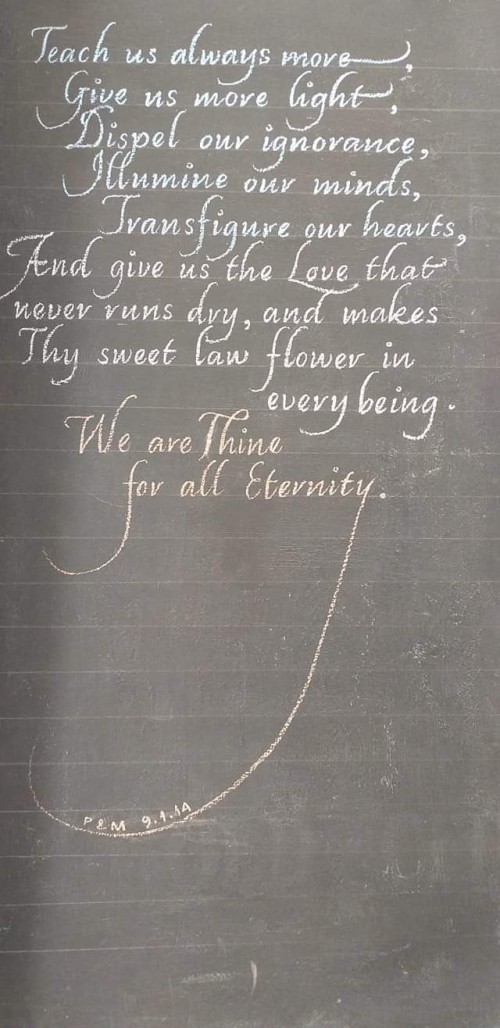 Teach us always more,
Give us more light,
Dispel our ignorance,
Illumine our minds,
Transfigure our hearts,
And give us the Love that
never runs dry, and makes
Thy sweet law flower in
every being.
We are Thine
for all Eternity.
P&M 9.1.1A